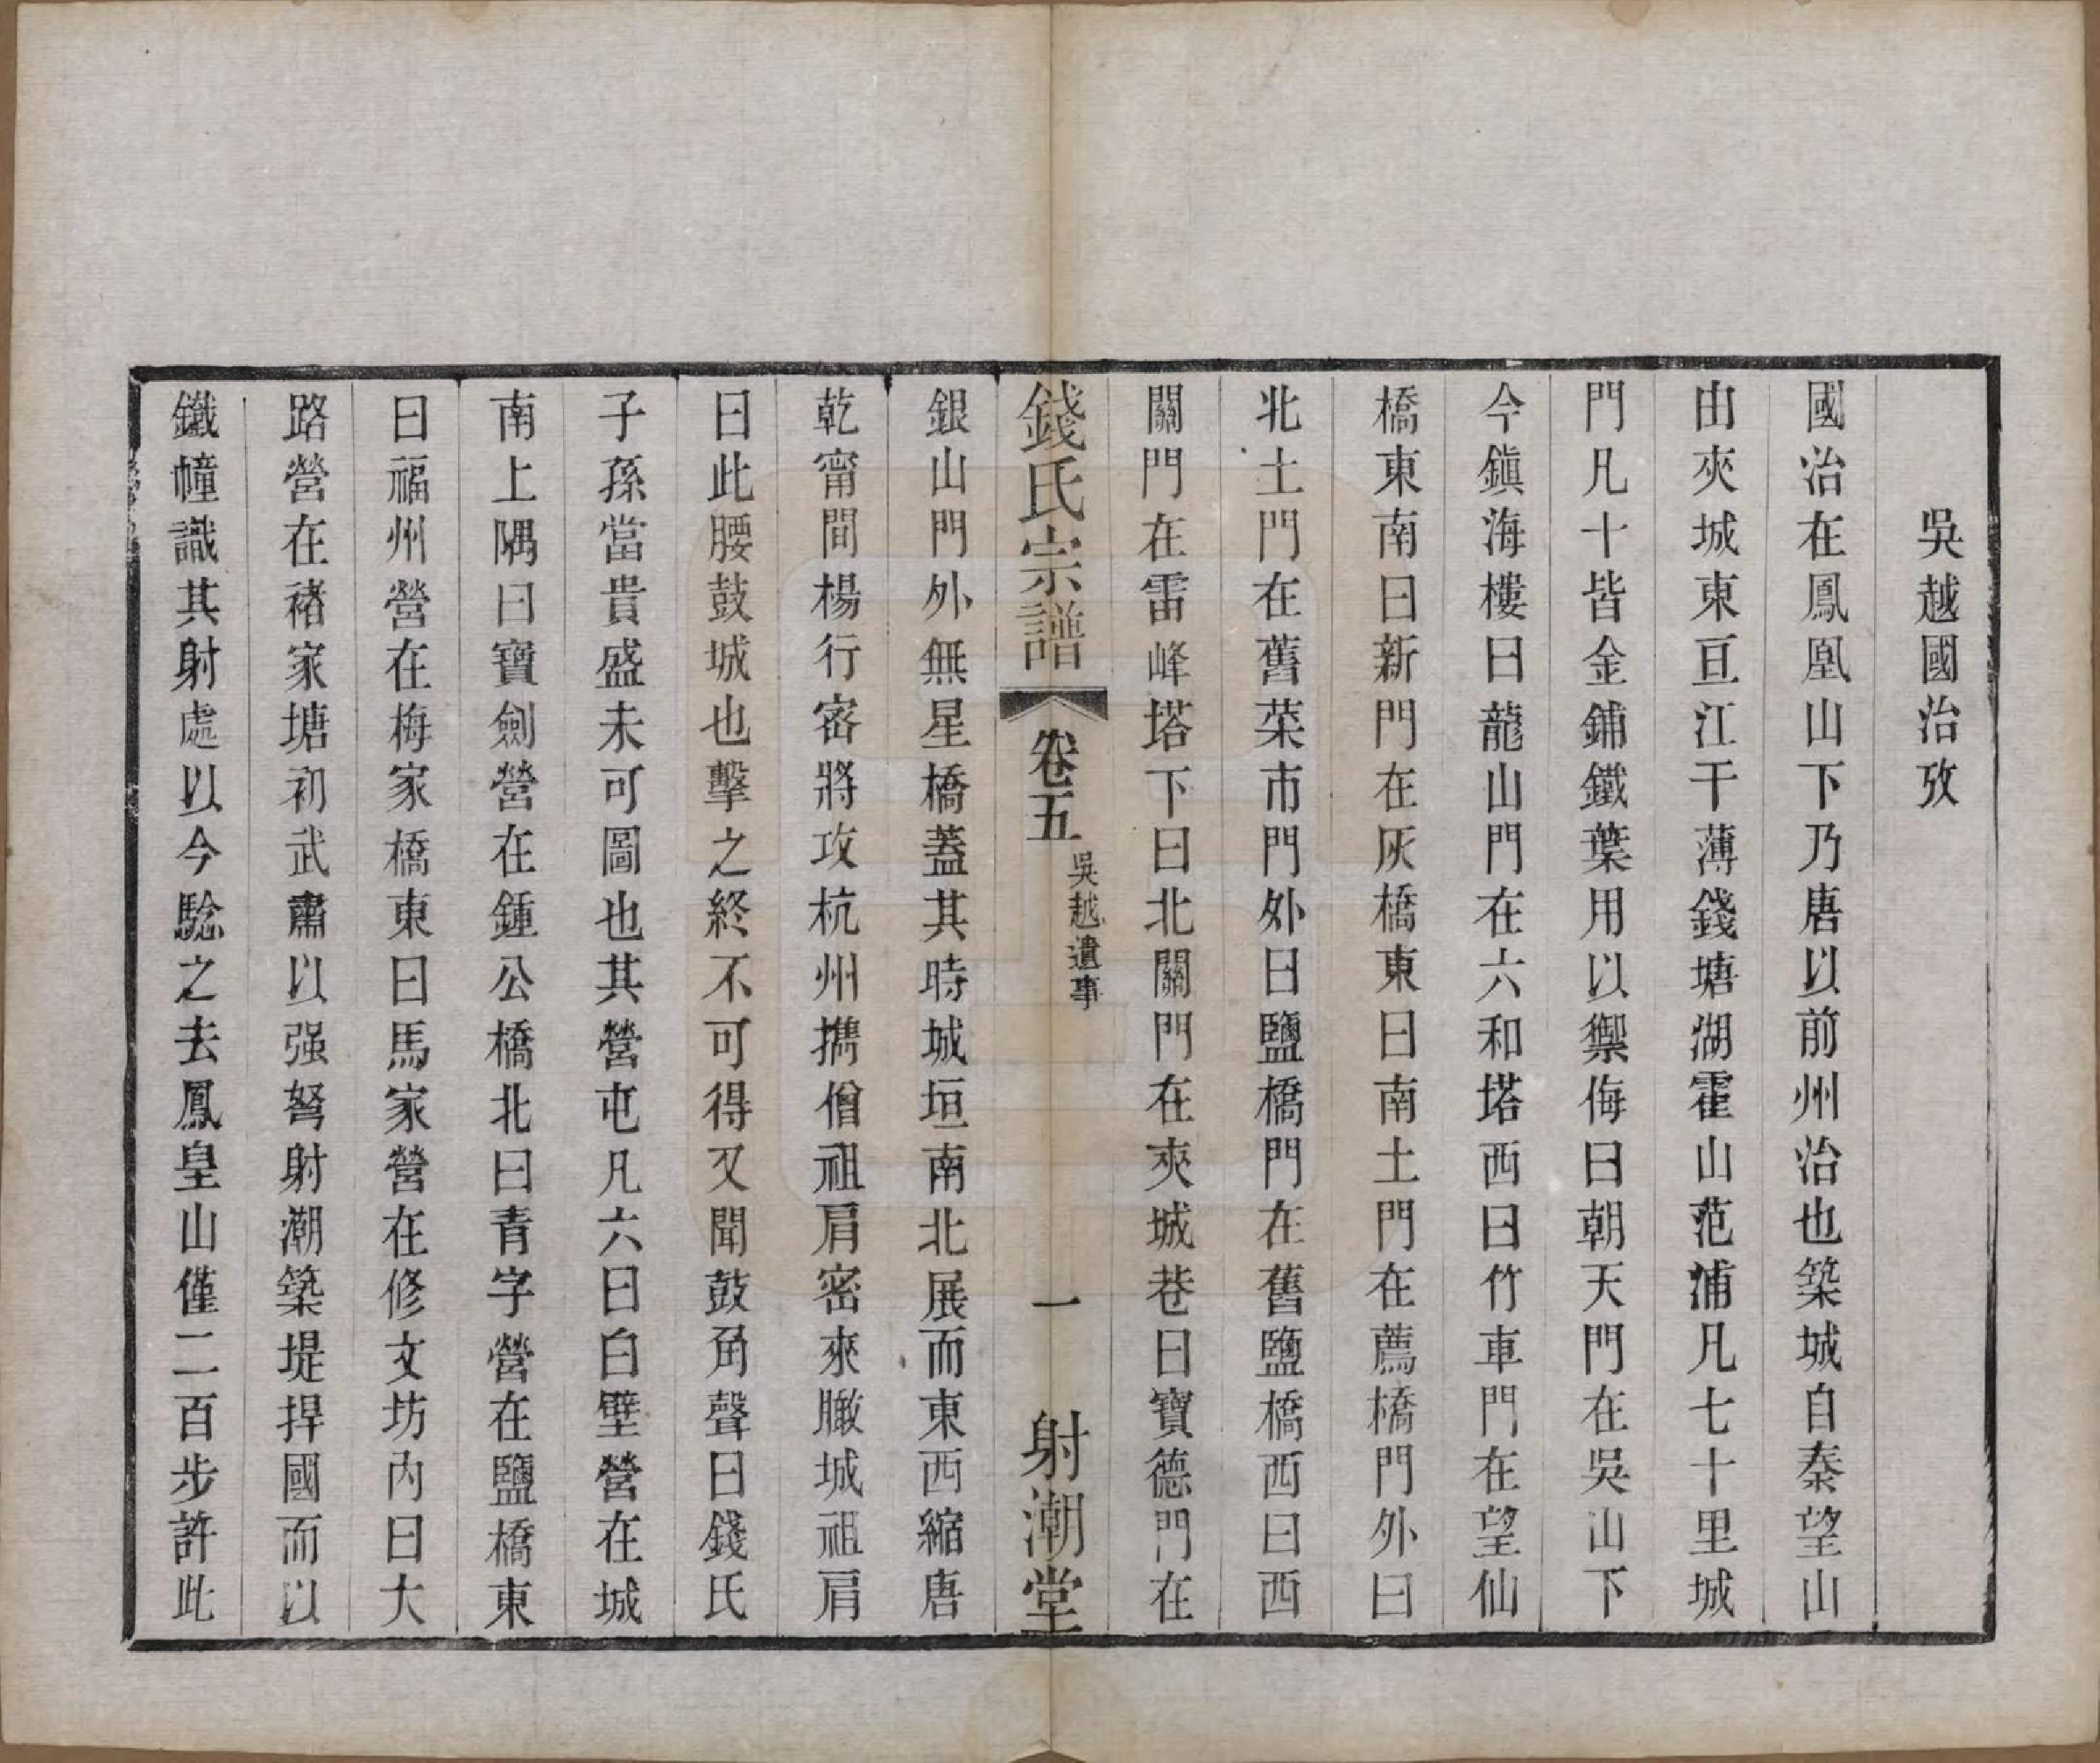 吳越國治攷
國治在鳳凰山下乃唐以前州治也築城自秦望山
由夾城東亘江干薄錢塘湖霍山范浦凡七十里城
門凡十皆金鋪鐵葉用以禦侮曰朝天門在吳山下
今鎭海樓曰龍山門在六和塔西曰竹車門在望仙
橋東南曰新門在灰橋東曰南土門在薦橋門外曰
北土門在舊菜市門外曰鹽橋門在舊鹽橋西曰西
關門在雷峰塔下曰北關門在夾城巷曰寶德門在
錢氏宗譜 卷五 吳越遺事 一 射潮堂
銀山門外無星橋蓋其時城垣南北展而東西縮唐
乾甯間楊行密將攻杭州攜僧祖肩密來瞰城祖肩
曰此腰鼓城也擊之終不可得又聞鼓角聲曰錢氏
子孫當貴盛未可圖也其營屯凡六曰白壁營在城
南上隅曰寶劍營在鍾公橋北曰青字營在鹽橋東
曰福州營在梅家橋東曰馬家營在修文坊內曰大
路營在褚家塘初武肅以强弩射潮築堤捍國而以
鐵幢識其射處以今騐之去鳳皇山僅二百步許此